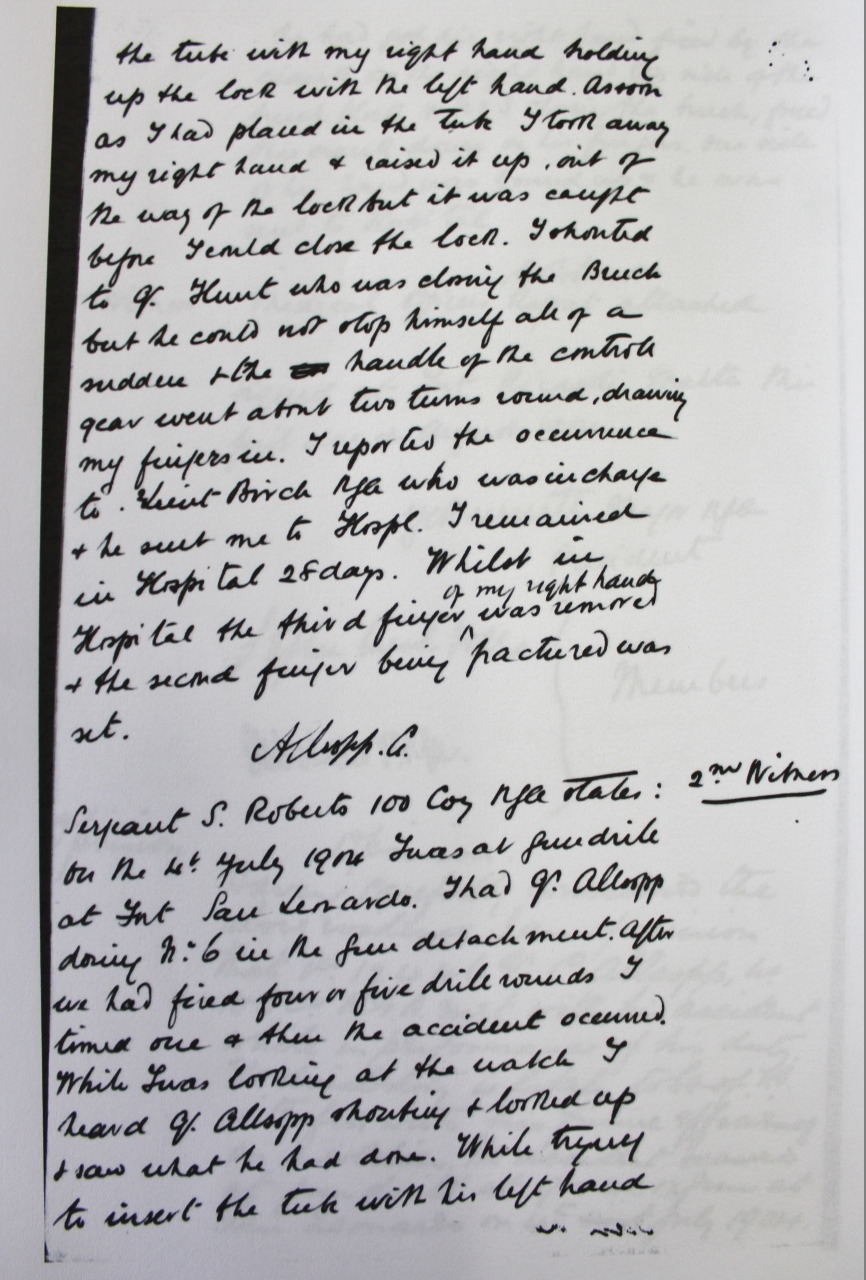 the tube with my right hand holding
up the lock with the left hand. As soon
as I had placed in the tube I took away
my right hand & raised it up, out of
the way of the lock but it was caught
before I could close the lock. I shouted
to Gr. Hunt who was closing the Breech
but he could not stop himself all of a
sudden & the handle of the controll
gear went about two turns round, drawing
my fingers in. I reported the occurrence
to Lieut Birch RGA who was in charge
& he sent me to Hospl. I remained
in Hospital 28 days. Whilst in
Hospital the third finger of my right hand was removed
& the second finger being fractured was
set.
Allsopp. G.
2nd Witness
Sergeant S. Roberts 100 Coy RGA states:
On the 4th July 1904 I was at gun drill
at Fort San Leonardo. I had Gr. Allsopp
doing No. 6 in the gun detachment. After
we had fired four or five drill rounds I
timed one & then the accident occurred.
While I was looking at the watch I
heard Gr. Allsopp shouting & looked up
& saw what he had done. While trying
to insert the tube with his left hand